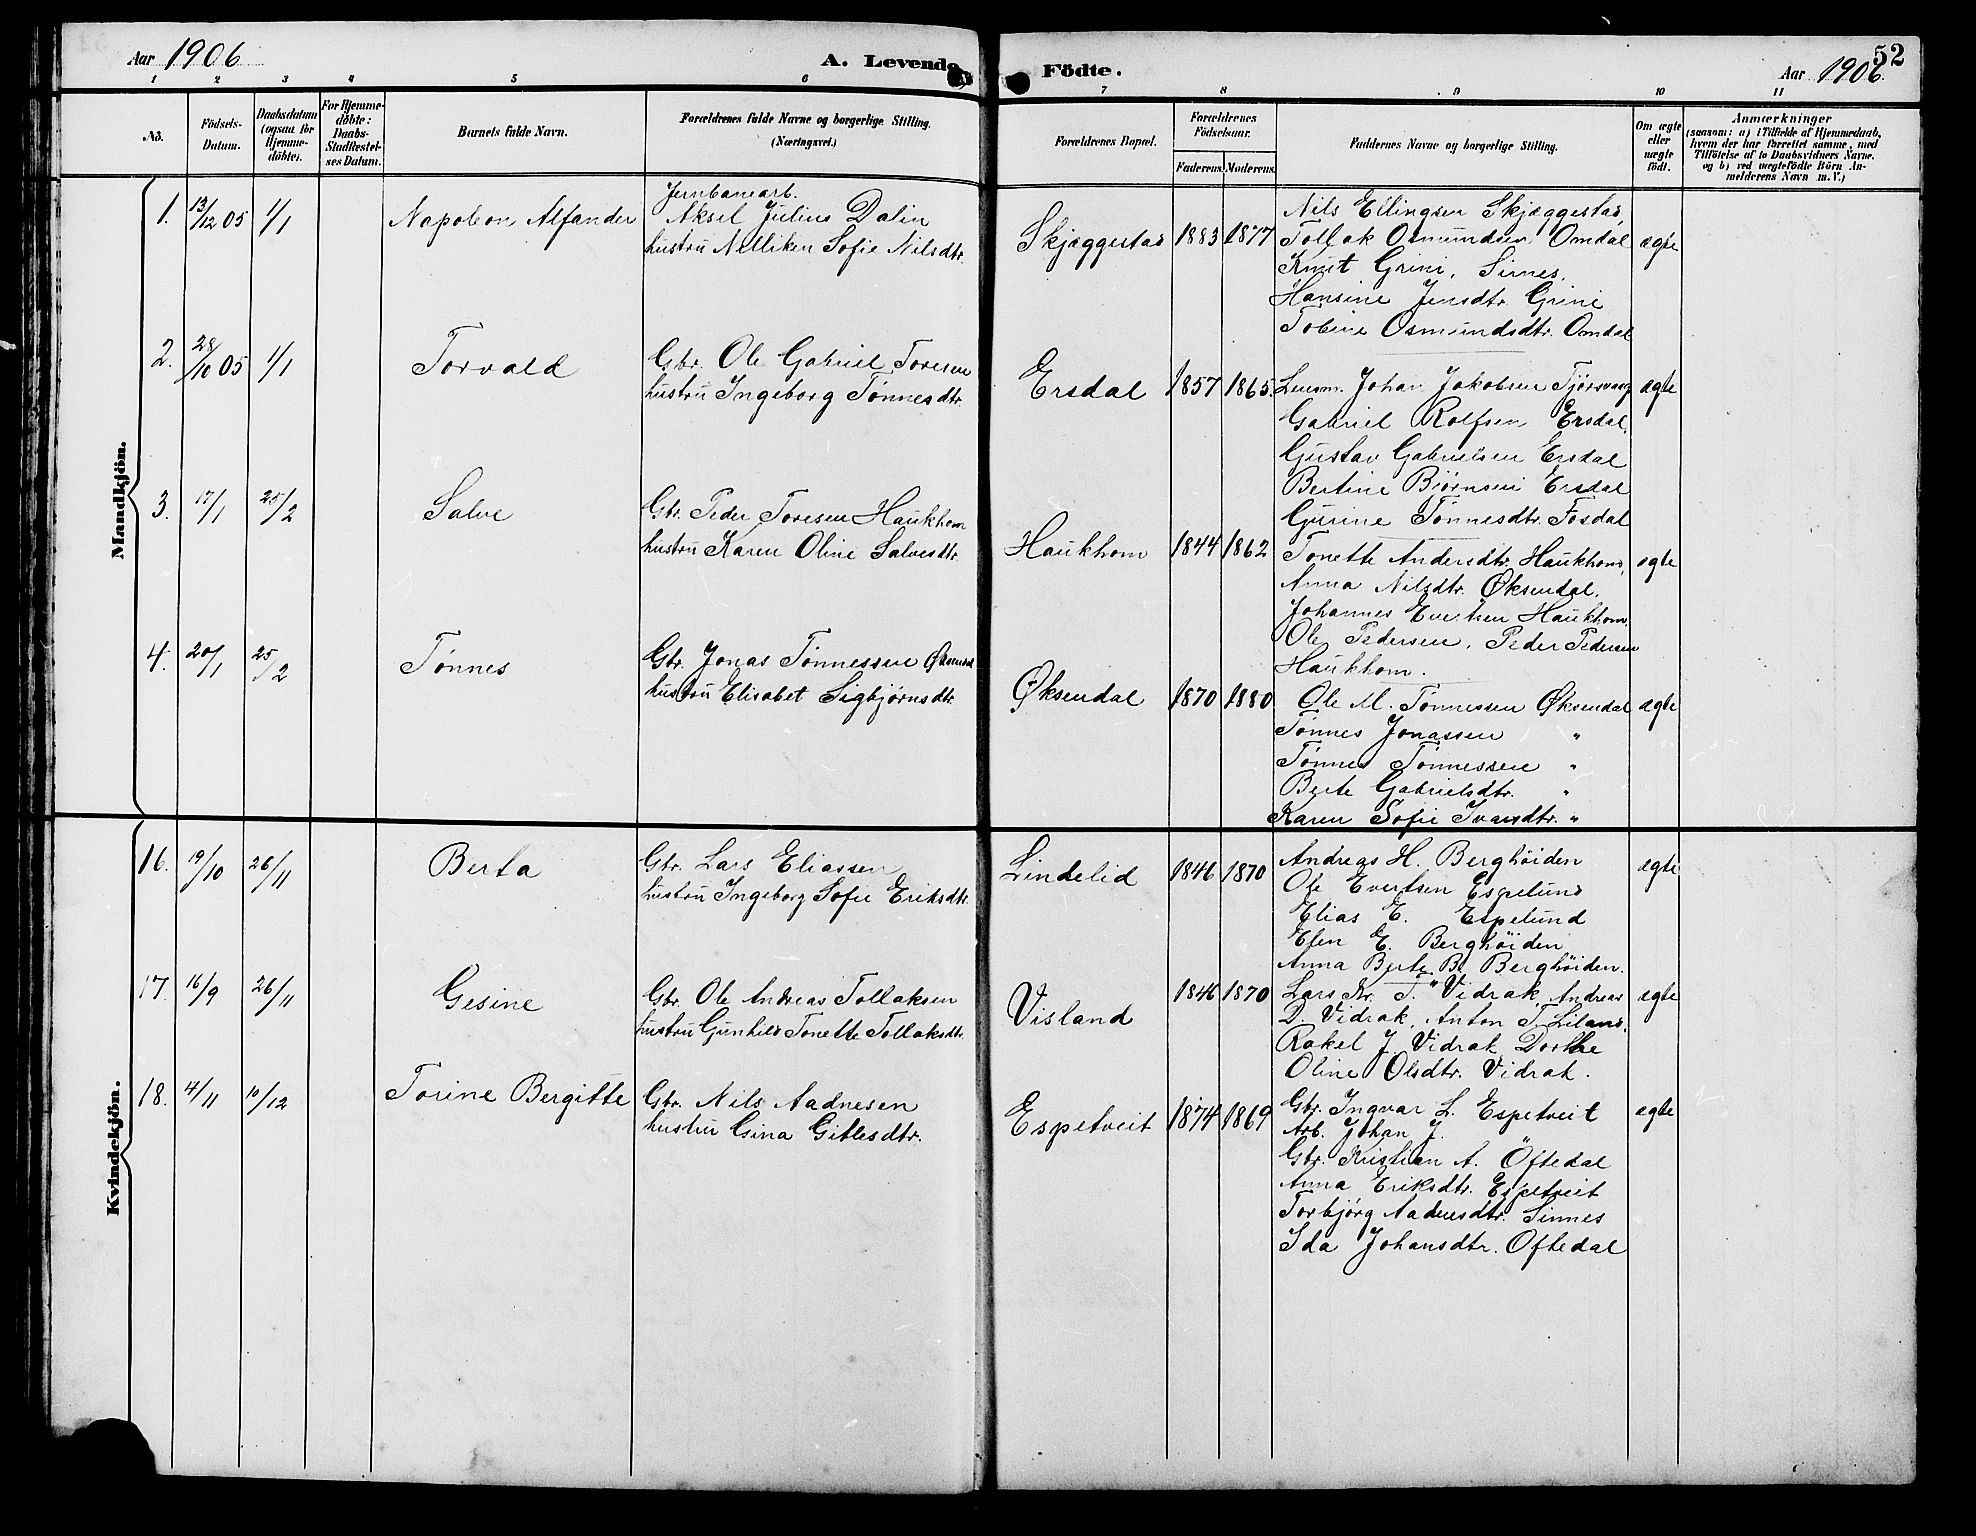 Aar 1906
A. Levende
Födte.
Aar 1906.
52
1 2 3 4 5 6 7 8 9 10 11
No.
Födsels-
Datum.
Daabsdatum
(ogsaa for
Hjemme-
döbte).
For Hjemme-
döbte:
Daabs-
Stadfæstel-
ses Datum.
Barnets fulde Navn.
Forældrenes fulde Navne og borgerlige Stilling.
(Næringsvei.)
Forældrenes Bopæl.
Forældrenes
Födselsaar.
Faderens. Moderens.
Faddernes Navne og borgerlige Stilling.
Om ægte
eller
uægte
født.
Anmærkninger
(saasom: a) i Tilfælde af Hjemmedaab,
hvem der har forrettet samme, med
Tilföielse af to Daabsvidners Navne,
og b) ved uægtefödte Börn An-
melderens Navn m. V.)
Mandkjön.
1. 13/12 05 1/1 Napoleon Alfander
Jernbanearb.
Aksel Julius Dalin
hustru Nelliken Sofie Nilsdtr.
Skjæggestad 1883 1877
Nils Ellingsen Skjæggestad,
Tollak Osmundsen Omdal
Knut Grini, Sirnes,
Hansine Jensdtr. Grini
Tobine Osmundsdtr. Omdal
ægte
2. 28/10 05 1/1 Torvald
Gbr. Ole Gabriel Toresen
hustru Ingeborg Tønnesdtr.
Ersdal 1857 1865.
Lensm. Johan Jakobsen Tjørsvaag
Gabriel Rolfsen Ersdal,
Gustav Gabrielsen Ersdal
Bertine Bjørnsen Ersdal
Gurine Tønnesdtr. Fosdal
ægte
3. 17/1 25/2 Salve
Gbr. Peder Toresen Haukhom
hustru Karen Oline Salvesdtr.
Haukhom 1844 1862
Tonette Andersdtr. Haukhom,
Anna Nilsdtr. Øksendal,
Johannes Evertsen Haukhom,
Ole Pedersen, Peder Pedersen
Haukhom.
ægte
4. 20/1 25/2 Tønnes
Gbr. Jonas Tønnessen Øksendal
hustru Elisabet Sigbjørnsdtr.
Øksendal 1870 1880
Ole M. Tønnessen Øksendal
Tønnes Jonassen "
Tønnes Tønnessen "
Berte Gabrielsdtr. "
Karen Sofie Ivarsdtr. "
ægte
Kvindekjön.
16. 19/10 26/11 Berta
Gbr. Lars Eliassen
hustru Ingeborg Sofie Eriksdtr.
Lindelid 1846 1870
Andreas H. Berghöiden
Ole Evertsen Espelund
Elias E. Espelund
Elen E. Berghöiden
Anna Berte B. Berghöiden.
ægte
17. 16/9 26/11 Gesine
Gbr. Ole Andreas Tollaksen
hustru Gunhild Tonette Tollaksdtr.
Visland 1846 1870
Lars Kr. T. Vidrak, Andreas
D. Vidrak, Anton T. Liland,
Rakel J. Vidrak, Dorthe
Oline Olsdtr. Vidrak.
ægte
18. 4/11 10/12 Torine Bergitte
Gbr. Nils Aadnesen
hustru Gina Gitlesdtr.
Espetveit 1874 1869
Gbr. Ingvar L. Espetveit
Arb. Johan J. "
Gbr. Kristian A. Öftedal
Anna Eriksdtr. Espetveit
Torbjörg Aadnesdtr. Sinnes
Ida Johansdtr. Oftedal
ægte